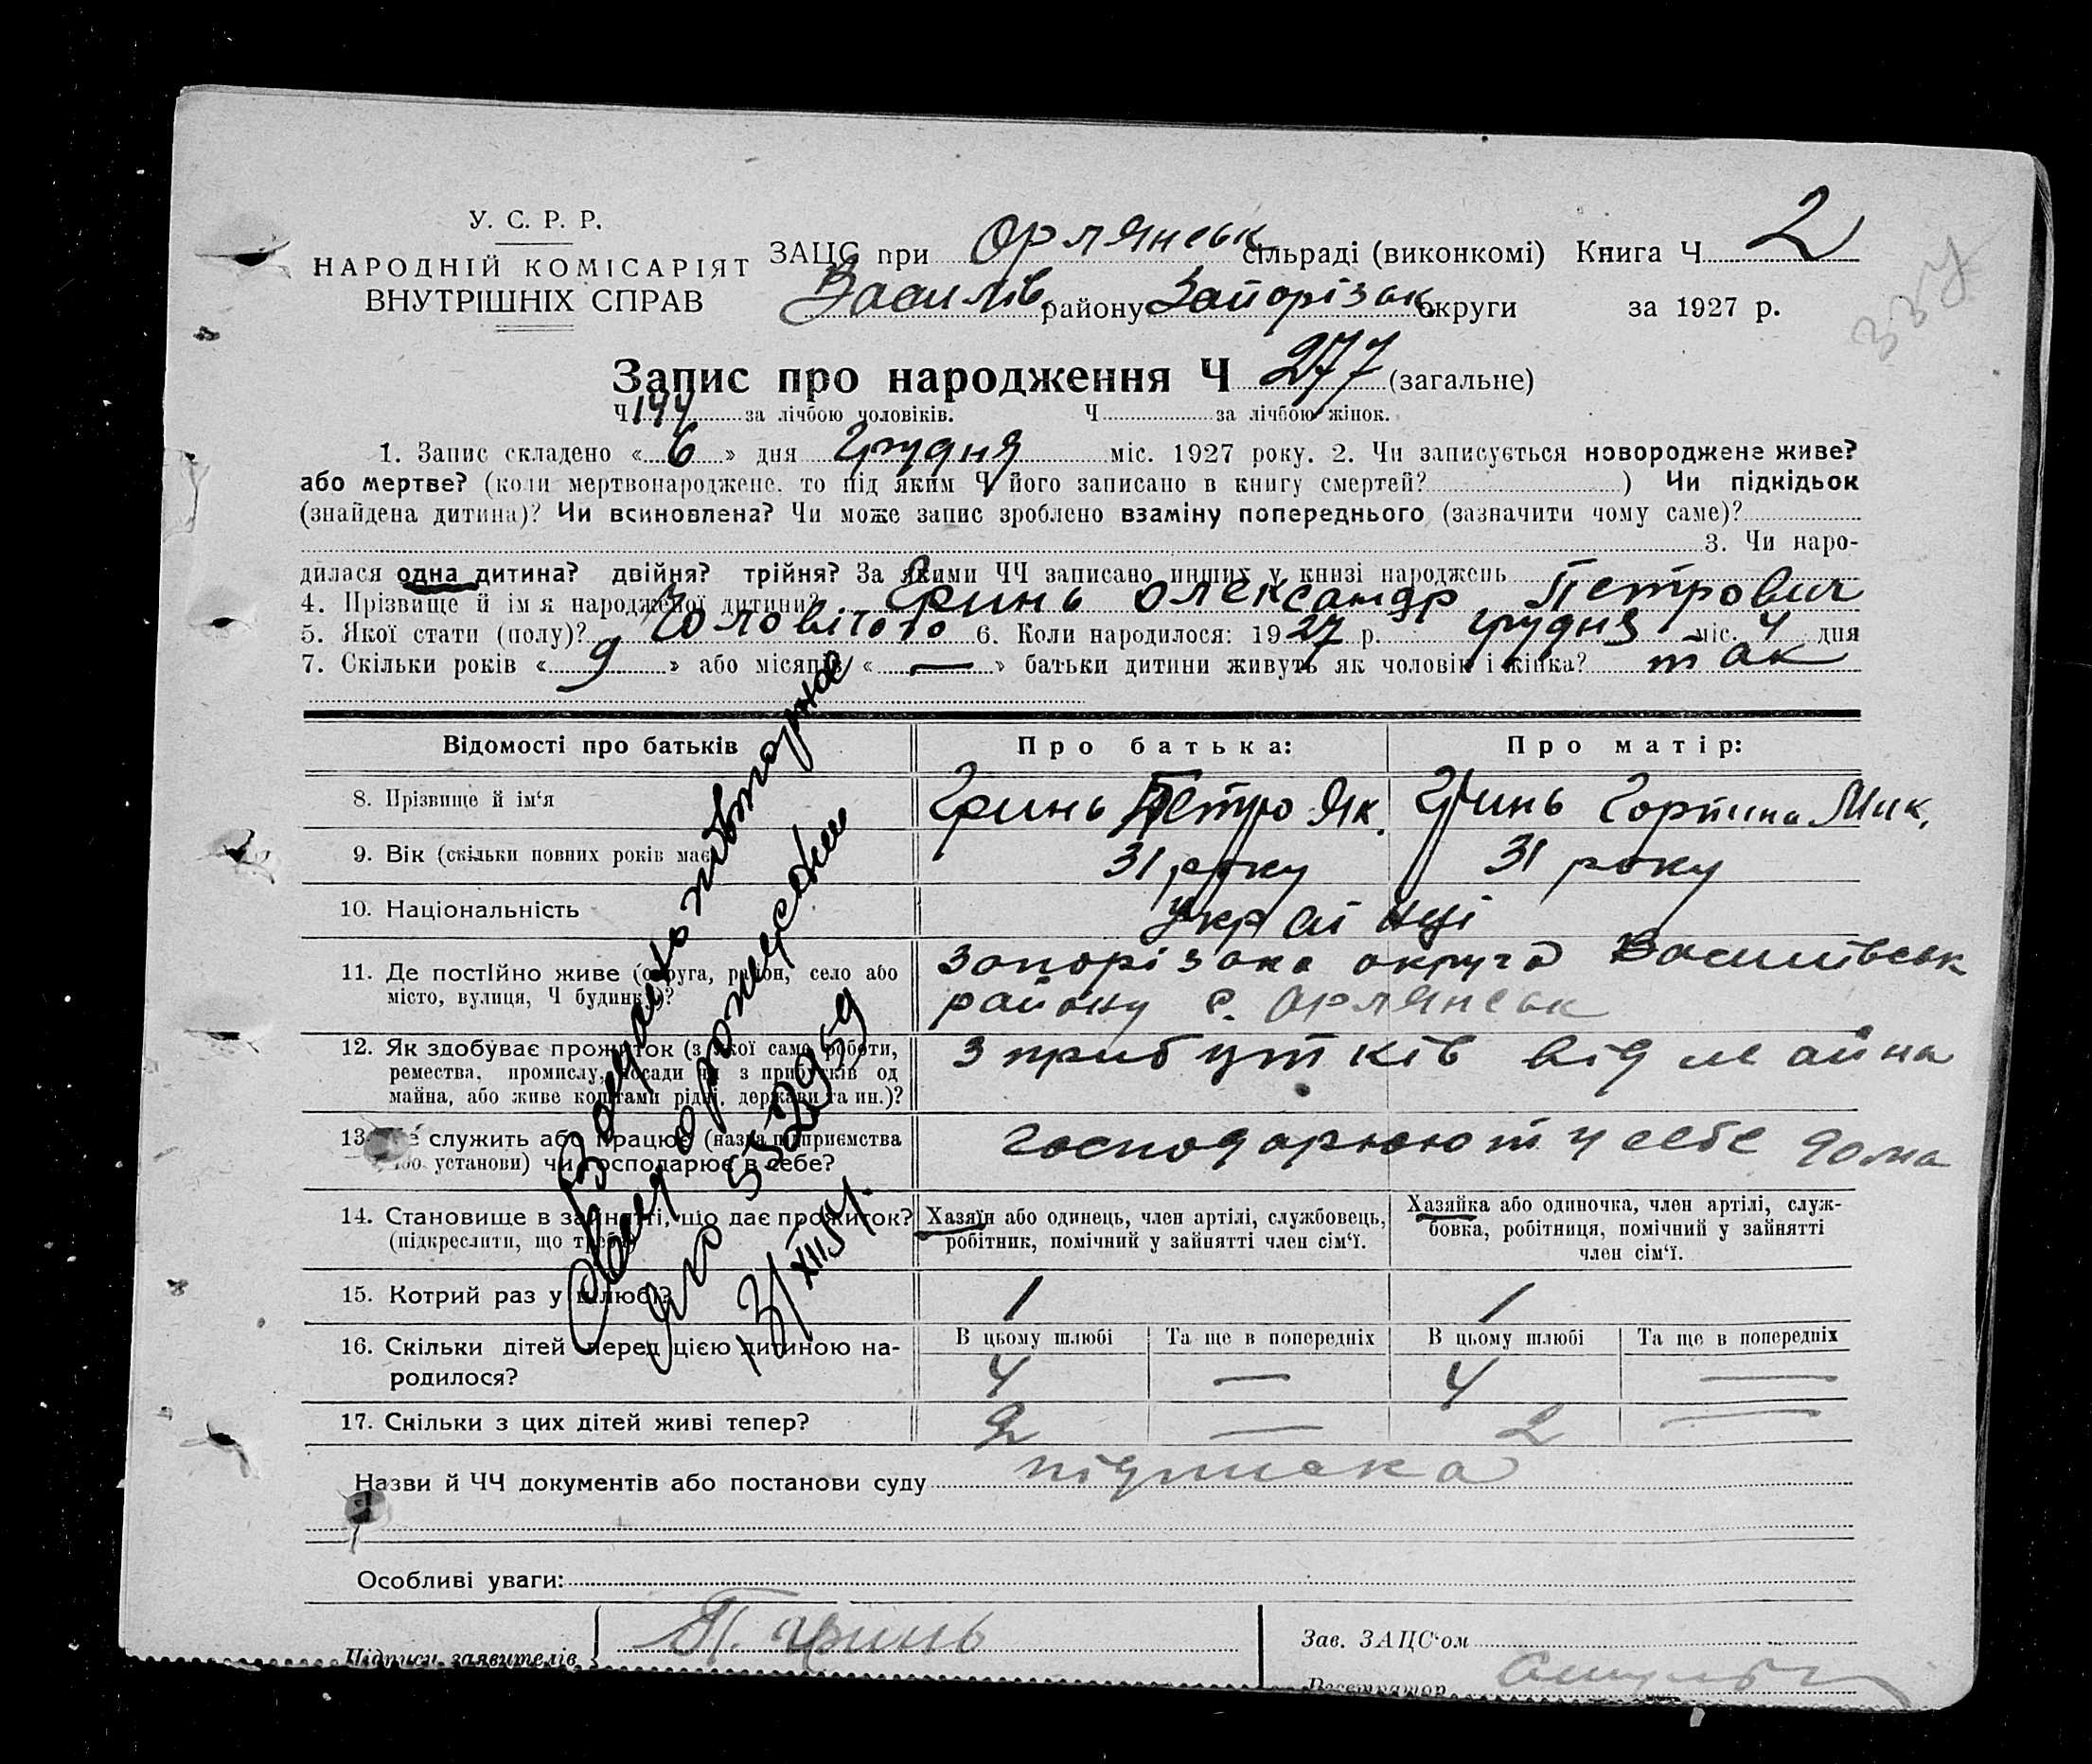 У. С. Р. Р.
НАРОДНІЙ КОМІСАРІЯТ
ВНУТРІШНІХ СПРАВ
ЗАЦС при Орлянськ сільраді (виконкомі) Книга Ч 2
Василів району Запорізьк округи за 1927 р.
337
Запис про народження Ч 277 (загальне)
Ч 144 за лічбою чоловіків. Ч за лічбою жінок.
1. Запис складено « 6 » дня Грудня міс. 1927 року. 2. Чи записується новороджене живе?
або мертве? (коли мертвонароджене, то під яким Ч його записано в книгу смертей? ) Чи підкідьок
(знайдена дитина)? Чи всиновлена? Чи може запис зроблено взаміну попереднього (зазначити чому саме)?
3. Чи наро-
дилася одна дитина? двійня? трійня? За якими ЧЧ записано инших у книзі народжень
4. Прізвище й ім'я народженої дитини? Гринь Олександр Петрович
5. Якої стати (полу)? Чоловічого 6. Коли народилося: 1927 р. грудня міс. 4 дня
7. Скільки років « 9 » або місяців « — » батьки дитини живуть як чоловік і жінка? так
Відомості про батьків Про батька: Про матір:
8. Прізвище й ім‘я Гринь Петро Як. Гринь Горпина Мик.
9. Вік (скільки повних років має 31 року 31 року
10. Національність українці
11. Де постійно живе (округа, район, село або
місто, вулиця, Ч будинку)?
Запорізька округа Василівськ
району с. Орлянськ
12. Як здобуває прожиток (з якої саме роботи,
ремества, промислу, посади чи з прибутків од
майна, або живе коштами рідні, держави та ин.)?
З прибутків від майна
13. Де служить або працює (назва підприємства
або установи) чи господарює в себе?
господарюют у себе дома
14. Становище в зайнятті, що дає прожиток?
(підкреслити, що треба)
Хазяїн або одинець, член артілі, службовець,
робітник, помічний у зайнятті член сім‘ї.
Хазяйка або одиночка, член артілі, служ-
бовка, робітниця, помічний у зайнятті
член сім‘ї.
15. Котрий раз у шлюбі? 1 1
16. Скільки дітей перед цією дитиною на-
родилося?
В цьому шлюбі Та ще в попередніх В цьому шлюбі Та ще в попередніх
4 — 4 —
17. Скільки з цих дітей живі тепер? 2 — 2 —
Назви й ЧЧ документів або постанови суду підписка
Особливі уваги:
Підписи заявителів П. Гринь
Зав. ЗАЦС‘ом
Реєстратор
Выдано повторное
Свид о рождении
ЯЮ 552959
31/XII 54.